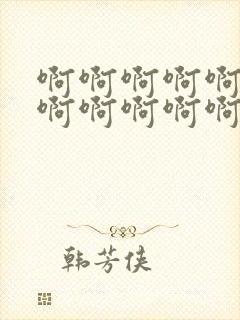 啊啊啊啊啊
啊啊啊啊啊
韩芳侠